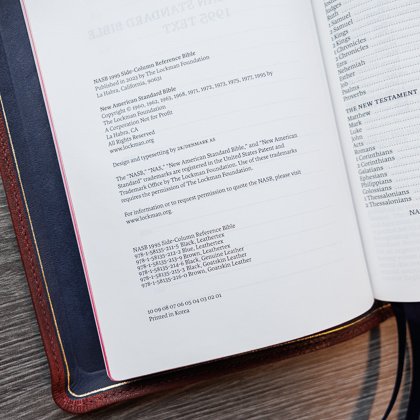 NASB 1995 Side-Column Reference Bible
Published in 2023 by The Lockman Foundation
La Habra, California, 90631
New American Standard Bible
Copyright © 1960, 1962, 1963, 1968, 1971, 1972, 1973, 1975, 1977, 1995 by
The Lockman Foundation
A Corporation Not for Profit
La Habra, CA
All Rights Reserved
www.lockman.org
Design and typesetting by 2K/DENMARK AS
The "NASB," "NAS," "New American Standard Bible," and "New American
Standard" trademarks are registered in the United States Patent and
Trademark Office by The Lockman Foundation. Use of these trademarks
requires the permission of The Lockman Foundation.
For information or to request permission to quote the NASB, please visit
www.lockman.org.
NASB 1995 Side-Column Reference Bible
978-1-58135-211-5 Black, Leathertex
978-1-58135-212-2 Blue, Leathertex
978-1-58135-213-9 Brown, Leathertex
978-1-58135-214-6 Black, Genuine Leather
978-1-58135-215-3 Black, Goatskin Leather
978-1-58135-216-0 Brown, Goatskin Leather
10 09 08 07 06 05 04 03 02 01
Printed in Korea
Judges
Ruth
1 Samuel
2 Samuel
1 Kings
2 Kings
1 Chronicles
2 Chronicles
Ezra
Nehemiah
Esther
Job
Psalms
Proverbs
THE NEW TESTAMENT
Matthew
Mark
Luke
John
Acts
Romans
1 Corinthians
2 Corinthians
Galatians
Ephesians
Philippians
Colossians
1 Thessalonians
2 Thessalonians